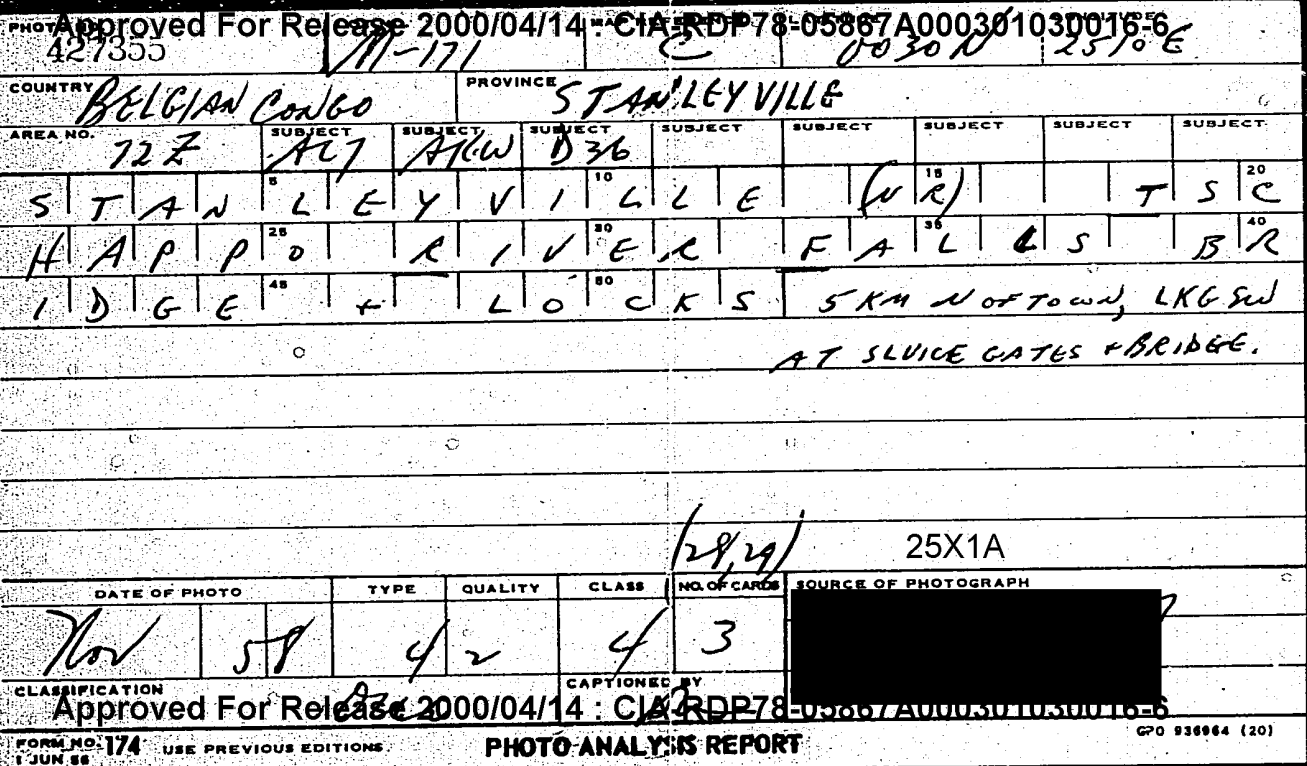 Approved For Release 2000/04/14 : CIA-RDP78-05867A000301030016-6
427355 M-171 C 0030N 2510E
COUNTRY BELGIAN CONGO PROVINCE STANLEYVILLE
AREA NO. SUBJECT SUBJECT SUBJECT SUBJECT SUBJECT SUBJECT SUBJECT SUBJECT
72Z D36
STANLEYVILLE (VR) TSC
HAPPO RIVER FALLS BR
IDGE + LOCKS 5 KM N OF TOWN, LKG SW
AT SLUICE GATES + BRIDGE.
(28,29) 25X1A
DATE OF PHOTO TYPE QUALITY CLASS NO. OF CARDS SOURCE OF PHOTOGRAPH
Nov 58 4 2 4 3
CLASSIFICATION CAPTIONED BY
Approved For Release 2000/04/14 : CIA-RDP78-05867A000301030016-6
FORM NO. 174 USE PREVIOUS EDITIONS PHOTO ANALYSIS REPORT GPO 936964 (20)
1 JUN 56